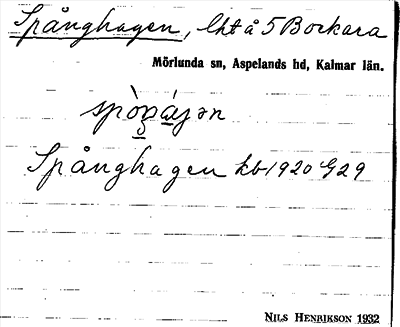 Spånghagen, lht å 5 Bockara
Mörlunda sn, Aspelands hd, Kalmar län.
Spånghagen kb 1920 G29
NILS HENRIKSON 1932